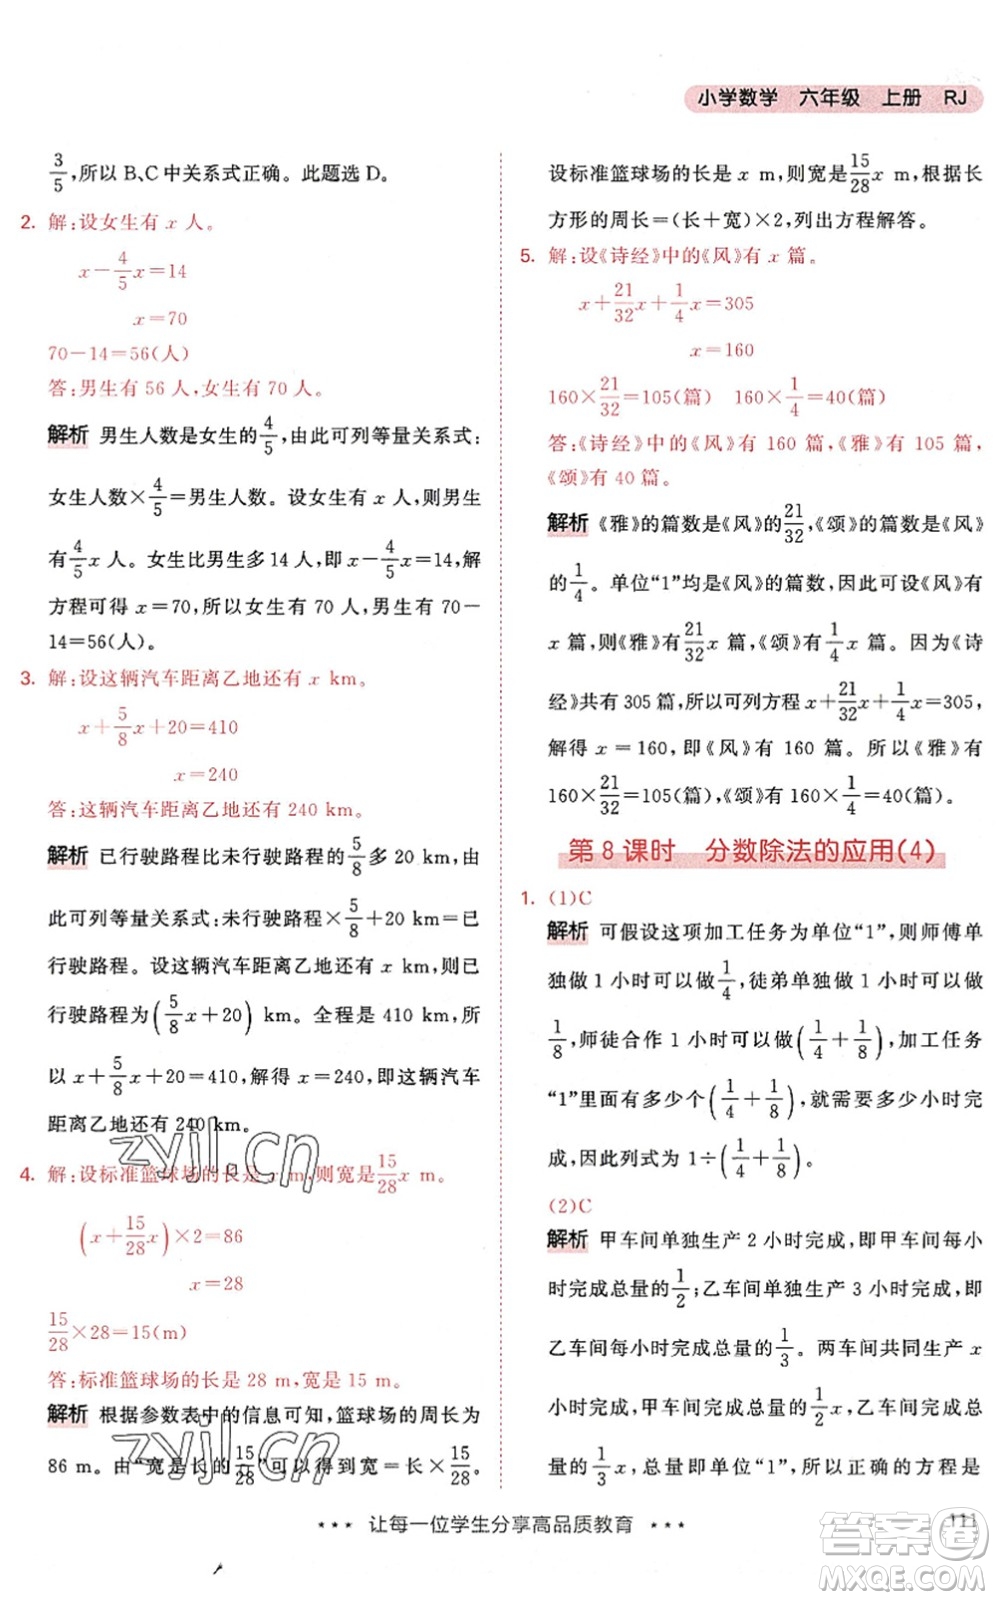 小学数学 六年级 上册 RJ
3/5,所以 B、C 中关系式正确。此题选 D。
2. 解:设女生有 x 人。
x－4/5x＝14
x＝70
70－14＝56(人)
答:男生有 56 人,女生有 70 人。
解析 男生人数是女生的4/5,由此可列等量关系式:
女生人数×4/5＝男生人数。设女生有 x 人,则男生
有4/5x 人。女生比男生多 14 人,即 x－4/5x＝14,解
方程可得 x＝70,所以女生有 70 人,男生有 70－
14＝56(人)。
3. 解:设这辆汽车距离乙地还有 x km。
x＋5/8x＋20＝410
x＝240
答:这辆汽车距离乙地还有 240 km。
解析 已行驶路程比未行驶路程的5/8多 20 km,由
此可列等量关系式:未行驶路程×5/8＋20 km＝已
行驶路程。设这辆汽车距离乙地还有 x km,则已
行驶路程为(5/8x＋20) km。全程是 410 km,所
以 x＋5/8x＋20＝410,解得 x＝240,即这辆汽车
距离乙地还有 240 km。
4. 解:设标准篮球场的长是 x m,则宽是15/28x m。
(x＋15/28x)×2＝86
x＝28
15/28×28＝15(m)
答:标准篮球场的长是 28 m,宽是 15 m。
解析 根据参数表中的信息可知,篮球场的周长为
86 m。由“宽是长的15/28”可以得到宽＝长×15/28。
设标准篮球场的长是 x m,则宽是15/28x m,根据长
方形的周长＝(长＋宽)×2,列出方程解答。
5. 解:设《诗经》中的《风》有 x 篇。
x＋21/32x＋1/4x＝305
x＝160
160×21/32＝105(篇) 160×1/4＝40(篇)
答:《诗经》中的《风》有 160 篇,《雅》有 105 篇,
《颂》有 40 篇。
解析 《雅》的篇数是《风》的21/32,《颂》的篇数是《风》
的1/4。单位“1”均是《风》的篇数,因此可设《风》有
x 篇,则《雅》有21/32x 篇,《颂》有1/4x 篇。因为《诗
经》共有 305 篇,所以可列方程 x＋21/32x＋1/4x＝305,
解得 x＝160,即《风》有 160 篇。所以《雅》有
160×21/32＝105(篇),《颂》有 160×1/4＝40(篇)。
第 8 课时 分数除法的应用(4)
1. (1)C
解析 可假设这项加工任务为单位“1”,则师傅单
独做 1 小时可以做1/4,徒弟单独做 1 小时可以做
1/8,师徒合作 1 小时可以做(1/4＋1/8),加工任务
“1”里面有多少个(1/4＋1/8),就需要多少小时完
成,因此列式为 1÷(1/4＋1/8)。
(2)C
解析 甲车间单独生产 2 小时完成,即甲车间每小
时完成总量的1/2;乙车间单独生产 3 小时完成,即
乙车间每小时完成总量的1/3。两车间共同生产 x
小时完成,甲车间完成总量的1/2x,乙车间完成总
量的1/3x,总量即为单位“1”,所以正确的方程是
★★★ 让每一位学生分享高品质教育 ★★★
111
zyjl.cn
zyjl.cn
答案圈
MXQE.COM